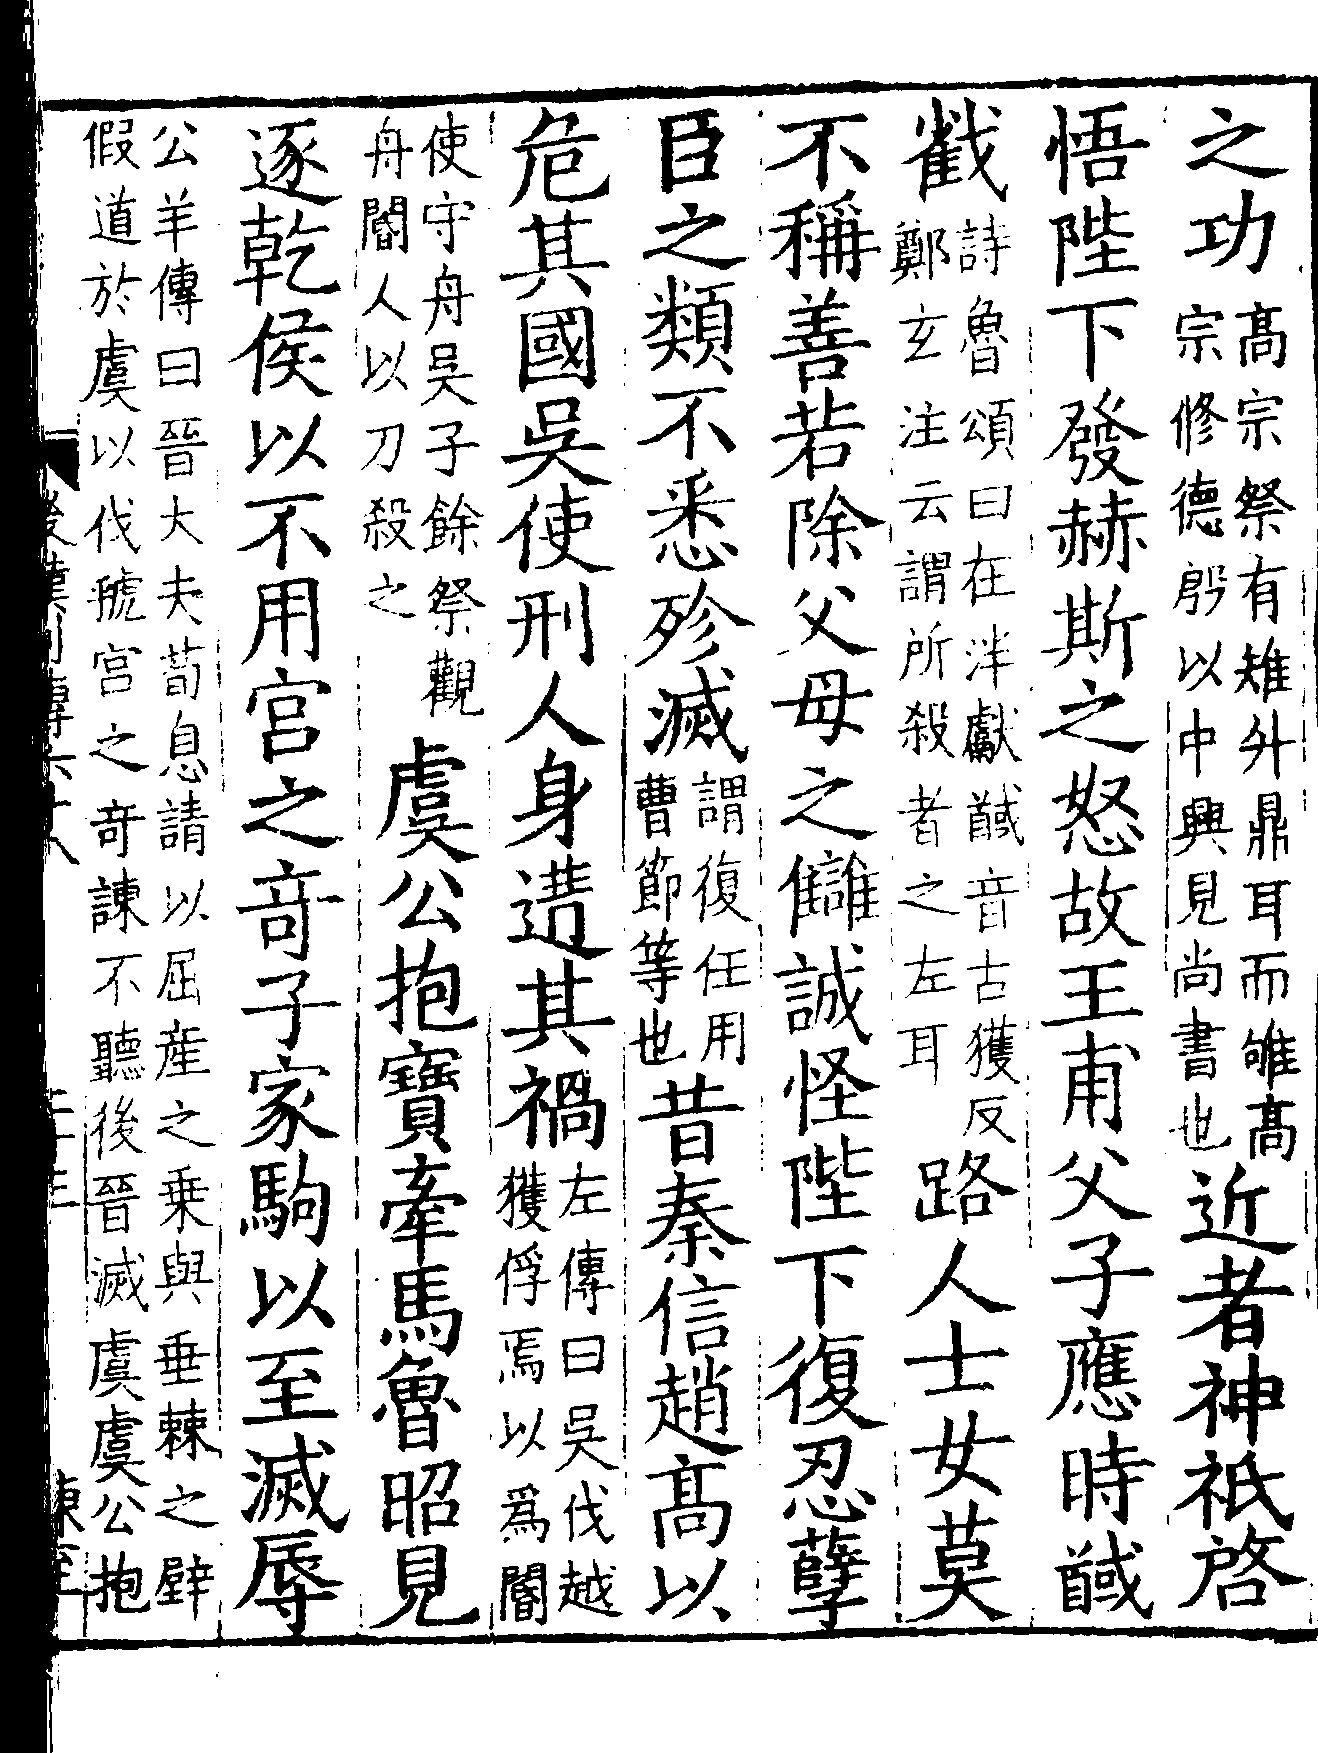 之功高宗祭有雉升鼎耳而雊高宗修德殷以中興見尚書也近者神祇啓
悟陛下發赫斯之怒故王甫父子應時馘
截詩魯頌曰在泮獻馘音古獲反鄭玄注云謂所殺者之左耳路人士女莫
不稱善若除父母之讎誠怪陛下復忍孽
臣之類不悉殄滅謂復任用曹節等也昔秦信趙高以
危其國吳使刑人身遘其禍左傳曰吳伐越獲俘焉以爲閽
使守舟吳子餘祭觀舟閽人以刀殺之虞公抱寶牽馬魯昭見
逐乾侯以不用宮之奇子家駒以至滅辱
公羊傳曰晉大夫荀息請以屈産之乗與垂棘之璧假道於虞以伐虢宮之奇諫不聽後晉滅虞虞公抱